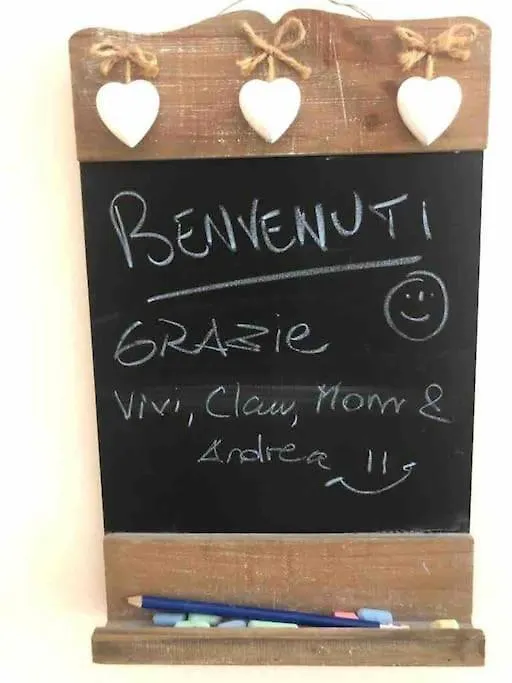 BENVENUTI
GRAZIE
Vivi, Clau, &
Andrea